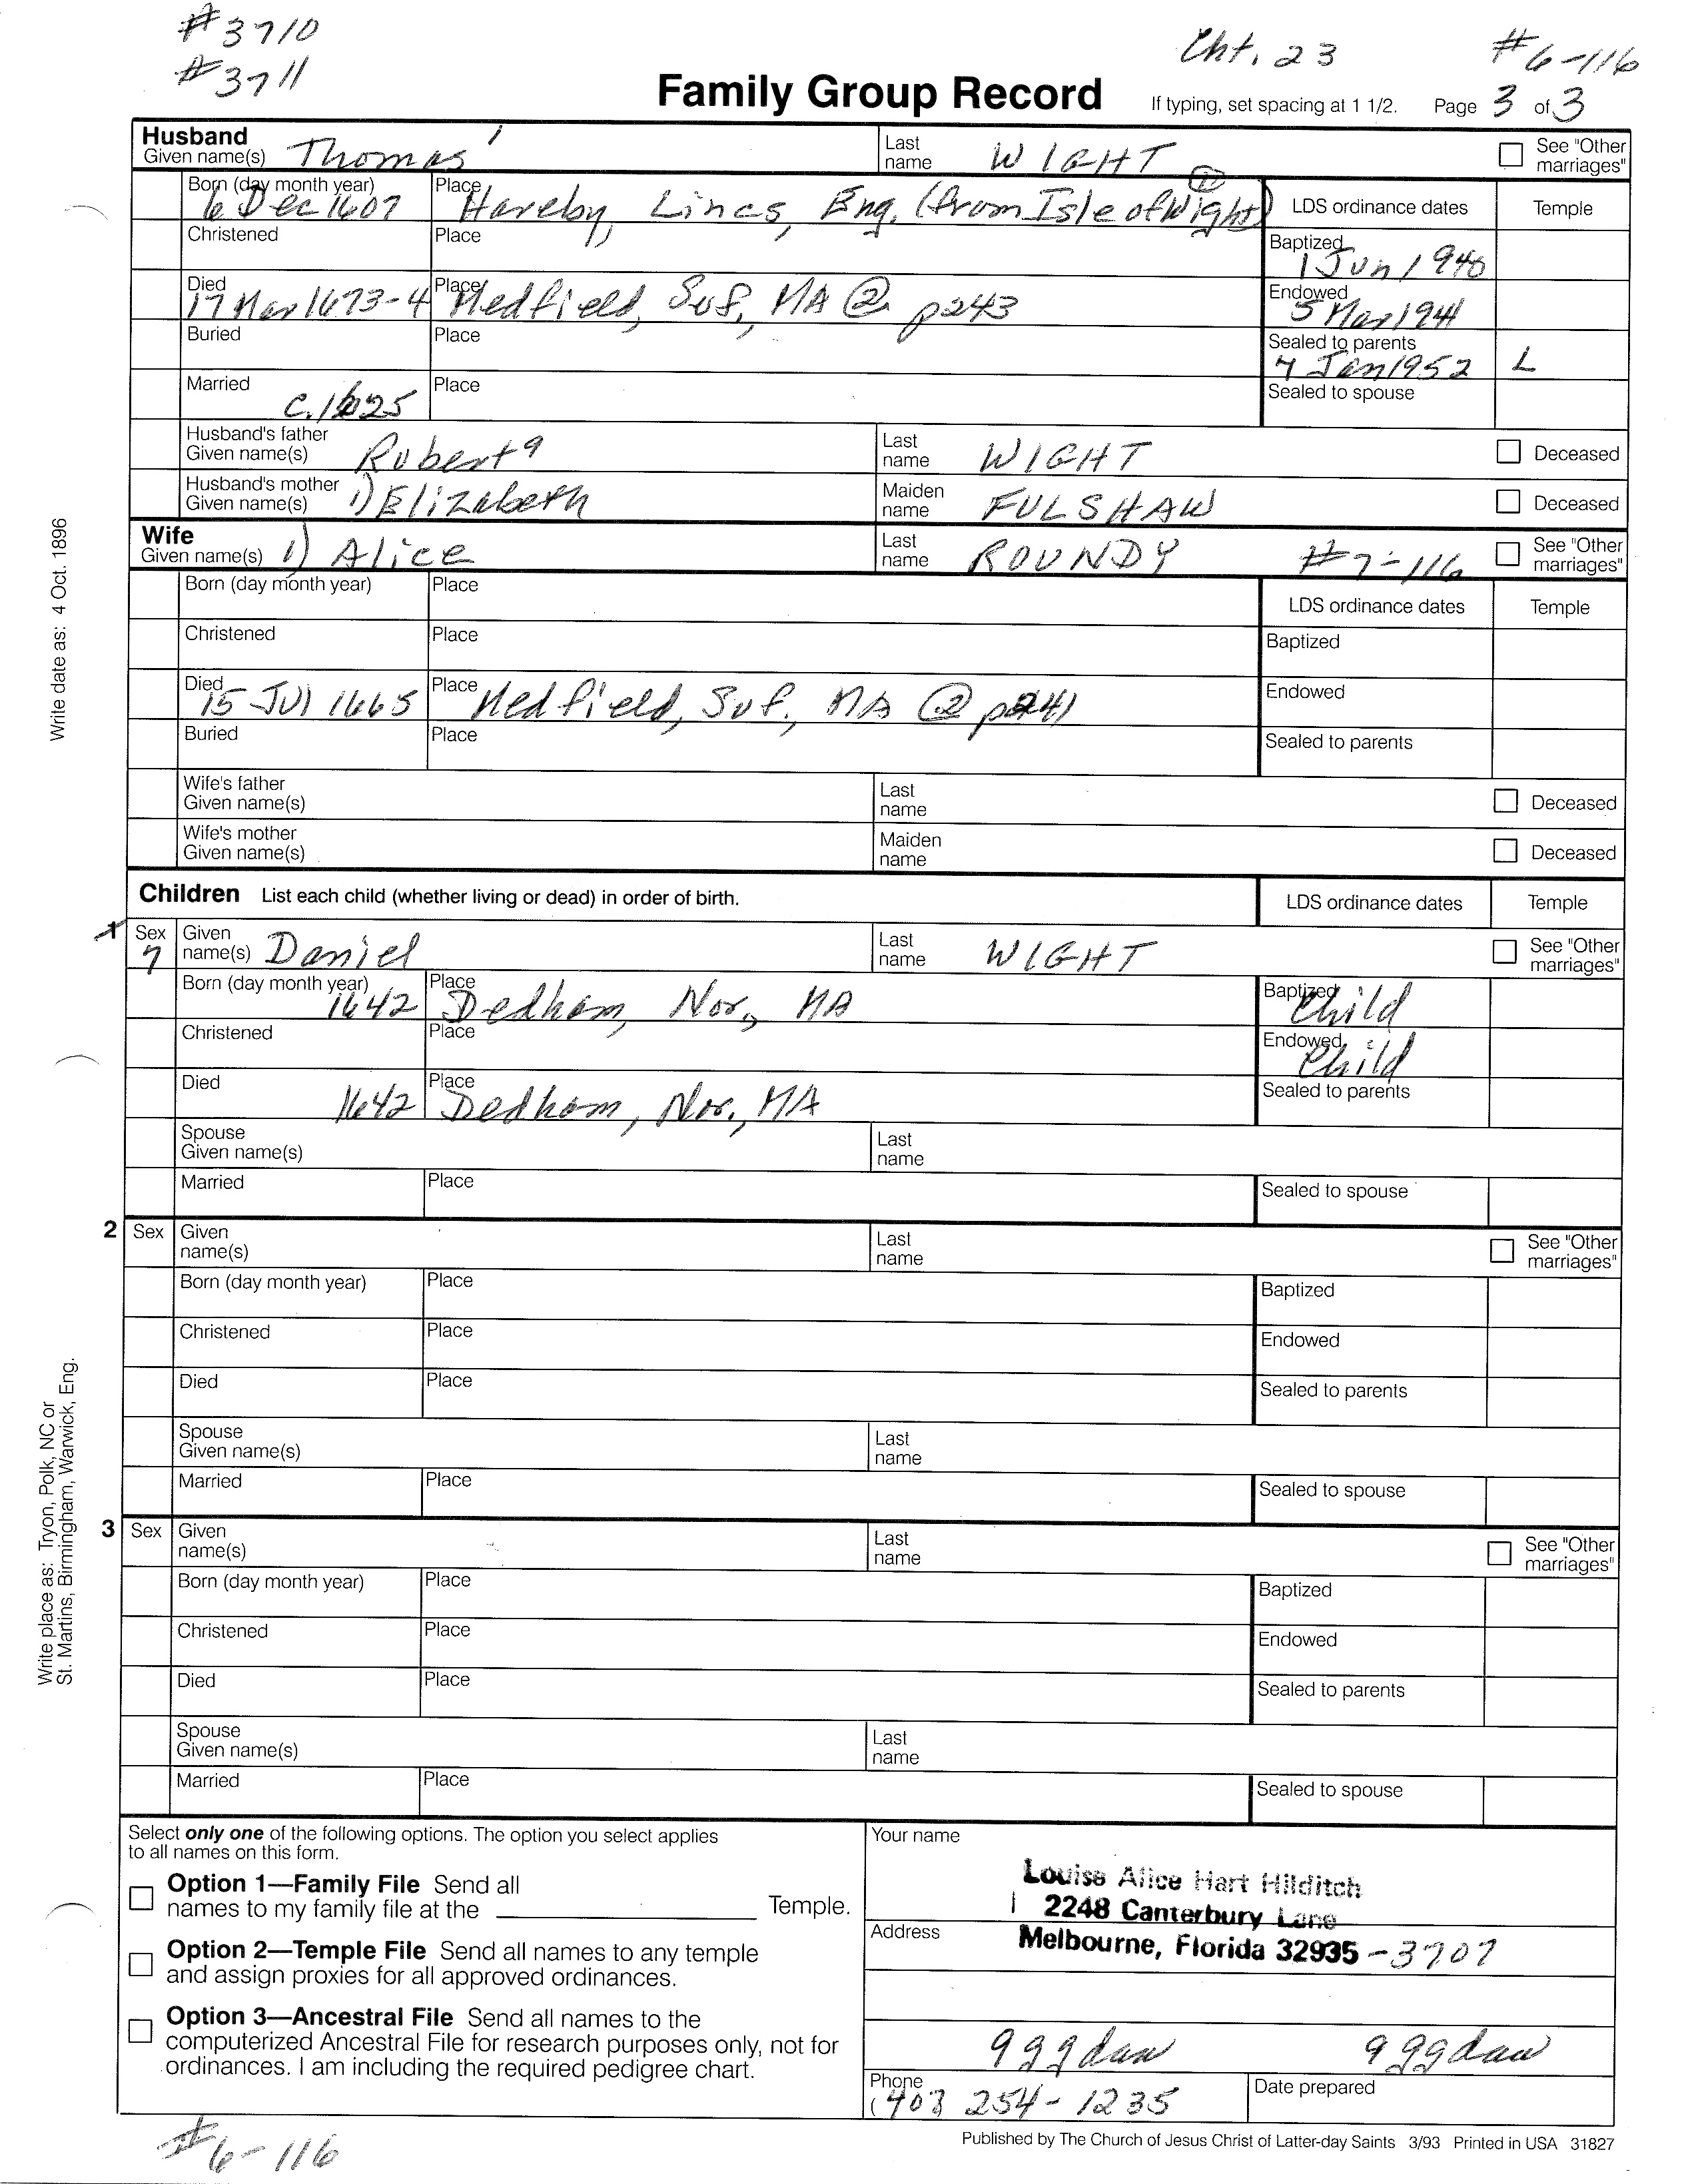 #3710
#3711
Cht. 23
#6-116
Family Group Record
If typing, set spacing at 1 1/2. Page 3 of 3
Husband
Given name(s) Thomas
Last name WIGHT
See "Other marriages"
Born (day month year) 6 Dec 1607
Place Hareby, Lincs, Eng. (from Isle of Wight)
LDS ordinance dates Temple
Christened
Place
Baptized 1 Jun 1940
Died 17 Mar 1673-4
Place Medfield, Suf, MA @ p243
Endowed 5 Mar 1941
Buried
Place
Sealed to parents 4 Jan 1952 L
Married c. 1625
Place
Sealed to spouse
Husband's father
Given name(s) Robert 9
Last name WIGHT
Deceased
Husband's mother
Given name(s) 1) Elizabeth
Maiden name FULSHAW
Deceased
Wife
Given name(s) 1) Alice
Last name ROUNDY #7-116
See "Other marriages"
Born (day month year)
Place
LDS ordinance dates Temple
Christened
Place
Baptized
Died 15 Jul 1665
Place Medfield, Suf, MA @ p241
Endowed
Buried
Place
Sealed to parents
Wife's father
Given name(s)
Last name
Deceased
Wife's mother
Given name(s)
Maiden name
Deceased
Children List each child (whether living or dead) in order of birth.
LDS ordinance dates Temple
1 Sex 7
Given name(s) Daniel
Last name WIGHT
See "Other marriages"
Born (day month year) 1642
Place Dedham, Nor., MA
Baptized Child
Christened
Place
Endowed Child
Died 1642
Place Dedham, Nor., MA
Sealed to parents
Spouse
Given name(s)
Last name
Married
Place
Sealed to spouse
2 Sex
Given name(s)
Last name
See "Other marriages"
Born (day month year)
Place
Baptized
Christened
Place
Endowed
Died
Place
Sealed to parents
Spouse
Given name(s)
Last name
Married
Place
Sealed to spouse
3 Sex
Given name(s)
Last name
See "Other marriages"
Born (day month year)
Place
Baptized
Christened
Place
Endowed
Died
Place
Sealed to parents
Spouse
Given name(s)
Last name
Married
Place
Sealed to spouse
Write date as: 4 Oct. 1896
Write place as: Tryon, Polk, NC or
St. Martins, Birmingham, Warwick, Eng.
Select only one of the following options. The option you select applies
to all names on this form.
Option 1—Family File Send all
names to my family file at the Temple.
Option 2—Temple File Send all names to any temple
and assign proxies for all approved ordinances.
Option 3—Ancestral File Send all names to the
computerized Ancestral File for research purposes only, not for
ordinances. I am including the required pedigree chart.
Your name
Louise Alice Hart Hilditch
2248 Canterbury Lane
Address
Melbourne, Florida 32935-3707
9ggdau 9ggdau
Phone
(407 254-1235
Date prepared
Published by The Church of Jesus Christ of Latter-day Saints 3/93 Printed in USA 31827
#6-116